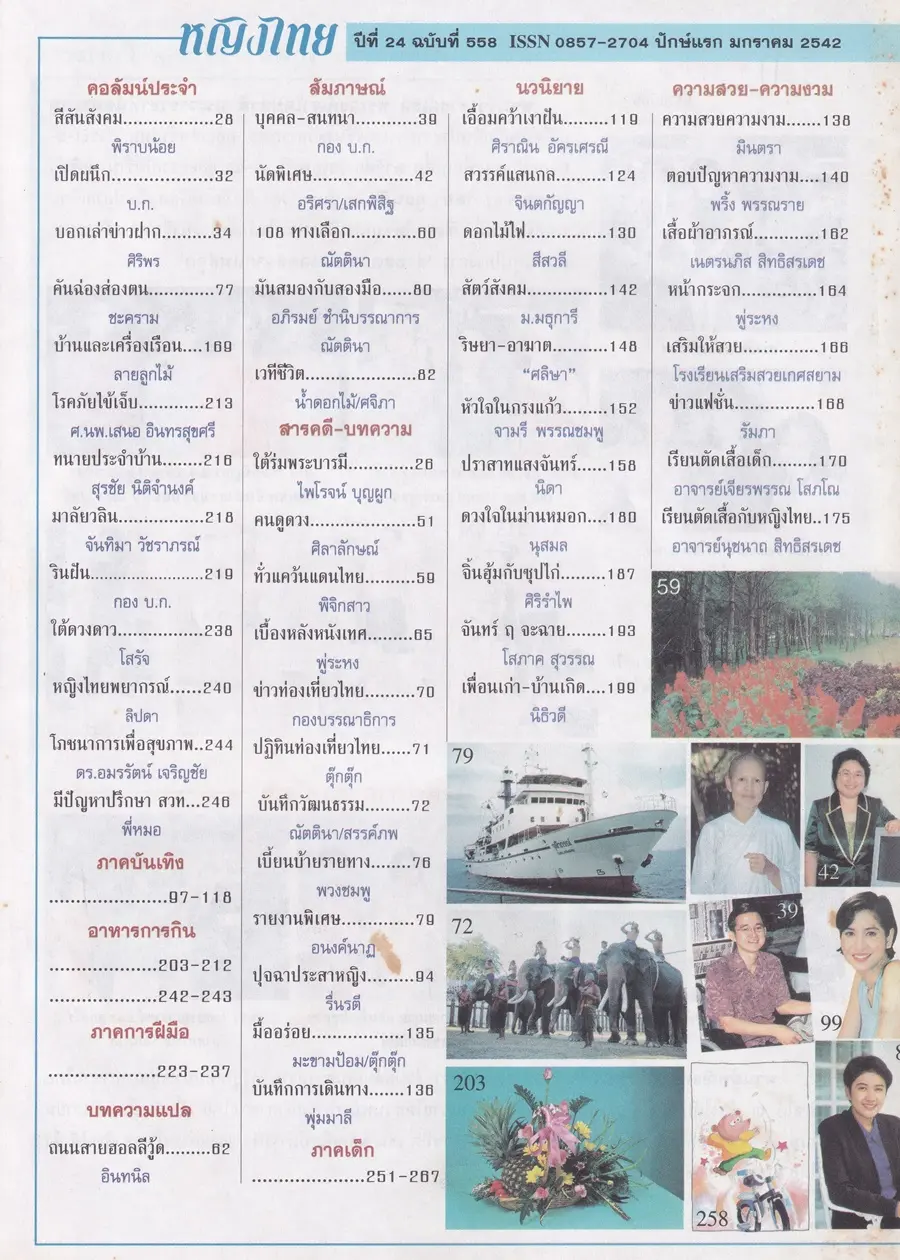 หญิงไทย
ปีที่ 24 ฉบับที่ 558 ISSN 0857-2704 ปักษ์แรก มกราคม 2542
คอลัมน์ประจำ
สีสันสังคม..............28
พิราบน้อย
เปิดผนึก................32
บ.ก.
บอกเล่าข่าวฝาก.........34
ศิริพร
คันฉ่องส่องตน............77
ชะคราม
บ้านและเครื่องเรือน....169
ลายลูกไม้
โรคภัยไข้เจ็บ............213
ศ.นพ.เสนอ อินทรสุขศรี
ทนายประจำบ้าน.......216
สุรชัย นิติจำนงค์
มาลัยวลิน...............218
จันทิมา วัชราภรณ์
รินฝัน.........................219
กอง บ.ก.
ใต้ดวงดาว...............238
โสรัจ
หญิงไทยพยากรณ์......240
ลิปดา
โภชนาการเพื่อสุขภาพ..244
ดร.อมรรัตน์ เจริญชัย
มีปัญหาปรึกษา สวท...246
พี่หมอ
ภาคบันเทิง
.....................97-118
อาหารการกิน
...................203-212
...................242-243
ภาคการฝีมือ
...................223-237
บทความแปล
ถนนสายฮอลลีวู้ด.........62
อินทนิล
สัมภาษณ์
บุคคล-สนทนา...........39
กอง บ.ก.
นัดพิเศษ..................42
อริศรา/เสกพิสิฐ
108 ทางเลือก...........60
ณัตตินา
มันสมองกับสองมือ......80
อภิรมย์ ชำนิบรรณาการ
ณัตตินา
เวทีชีวิต....................82
น้ำดอกไม้/ศจิภา
สารคดี-บทความ
ใต้ร่มพระบารมี............26
ไพโรจน์ บุญผูก
คนดูดวง...................51
ศิลาลักษณ์
ทั่วแคว้นแดนไทย........59
พิจิกสาว
เบื้องหลังหนังเทศ........65
พู่ระหง
ข่าวท่องเที่ยวไทย........70
กองบรรณาธิการ
ปฏิทินท่องเที่ยวไทย......71
ตุ๊กตุ๊ก
บันทึกวัฒนธรรม.........72
ณัตตินา/สรรค์ภพ
เบี้ยบ้ายรายทาง........76
พวงชมพู
รายงานพิเศษ.............79
อนงค์นาฏ
ปุจฉาประสาหญิง.........94
รื่นรตี
มื้ออร่อย..................135
มะขามป้อม/ตุ๊กตุ๊ก
บันทึกการเดินทาง.......136
พุ่มมาลี
ภาคเด็ก
....................251-267
นวนิยาย
เอื้อมคว้าเงาฝัน........119
ศิราณิน อัครเศรณี
สวรรค์แสนกล.........124
จินตกัญญา
ดอกไม้ไฟ...............130
สีสวลี
สัตว์สังคม................142
ม.มธุการี
ริษยา-อาฆาต..........148
"ศลิษา"
หัวใจในกรงแก้ว.......152
จามรี พรรณชมพู
ปราสาทแสงจันทร์.....158
นิดา
ดวงใจในม่านหมอก....180
นุสมล
จิ้นฮุ้มกับซุปไก่........187
ศิริรำไพ
จันทร์ ฤ จะฉาย.......193
โสภาค สุวรรณ
เพื่อนเก่า-บ้านเกิด....199
นิธิวดี
ความสวย-ความงวม
ความสวยความงาม......138
มินตรา
ตอบปัญหาความงาม....140
พริ้ง พรรณราย
เสื้อผ้าอาภรณ์...........162
เนตรนภิส สิทธิสรเดช
หน้ากระจก..............164
พู่ระหง
เสริมให้สวย..............166
โรงเรียนเสริมสวยเกศสยาม
ข่าวแฟชั่น...............168
รัมภา
เรียนตัดเสื้อเด็ก.........170
อาจารย์เจียรพรรณ โสภโณ
เรียนตัดเสื้อกับหญิงไทย..175
อาจารย์นุชนาถ สิทธิสรเดช
59
79
42
72
39
99
203
258
8